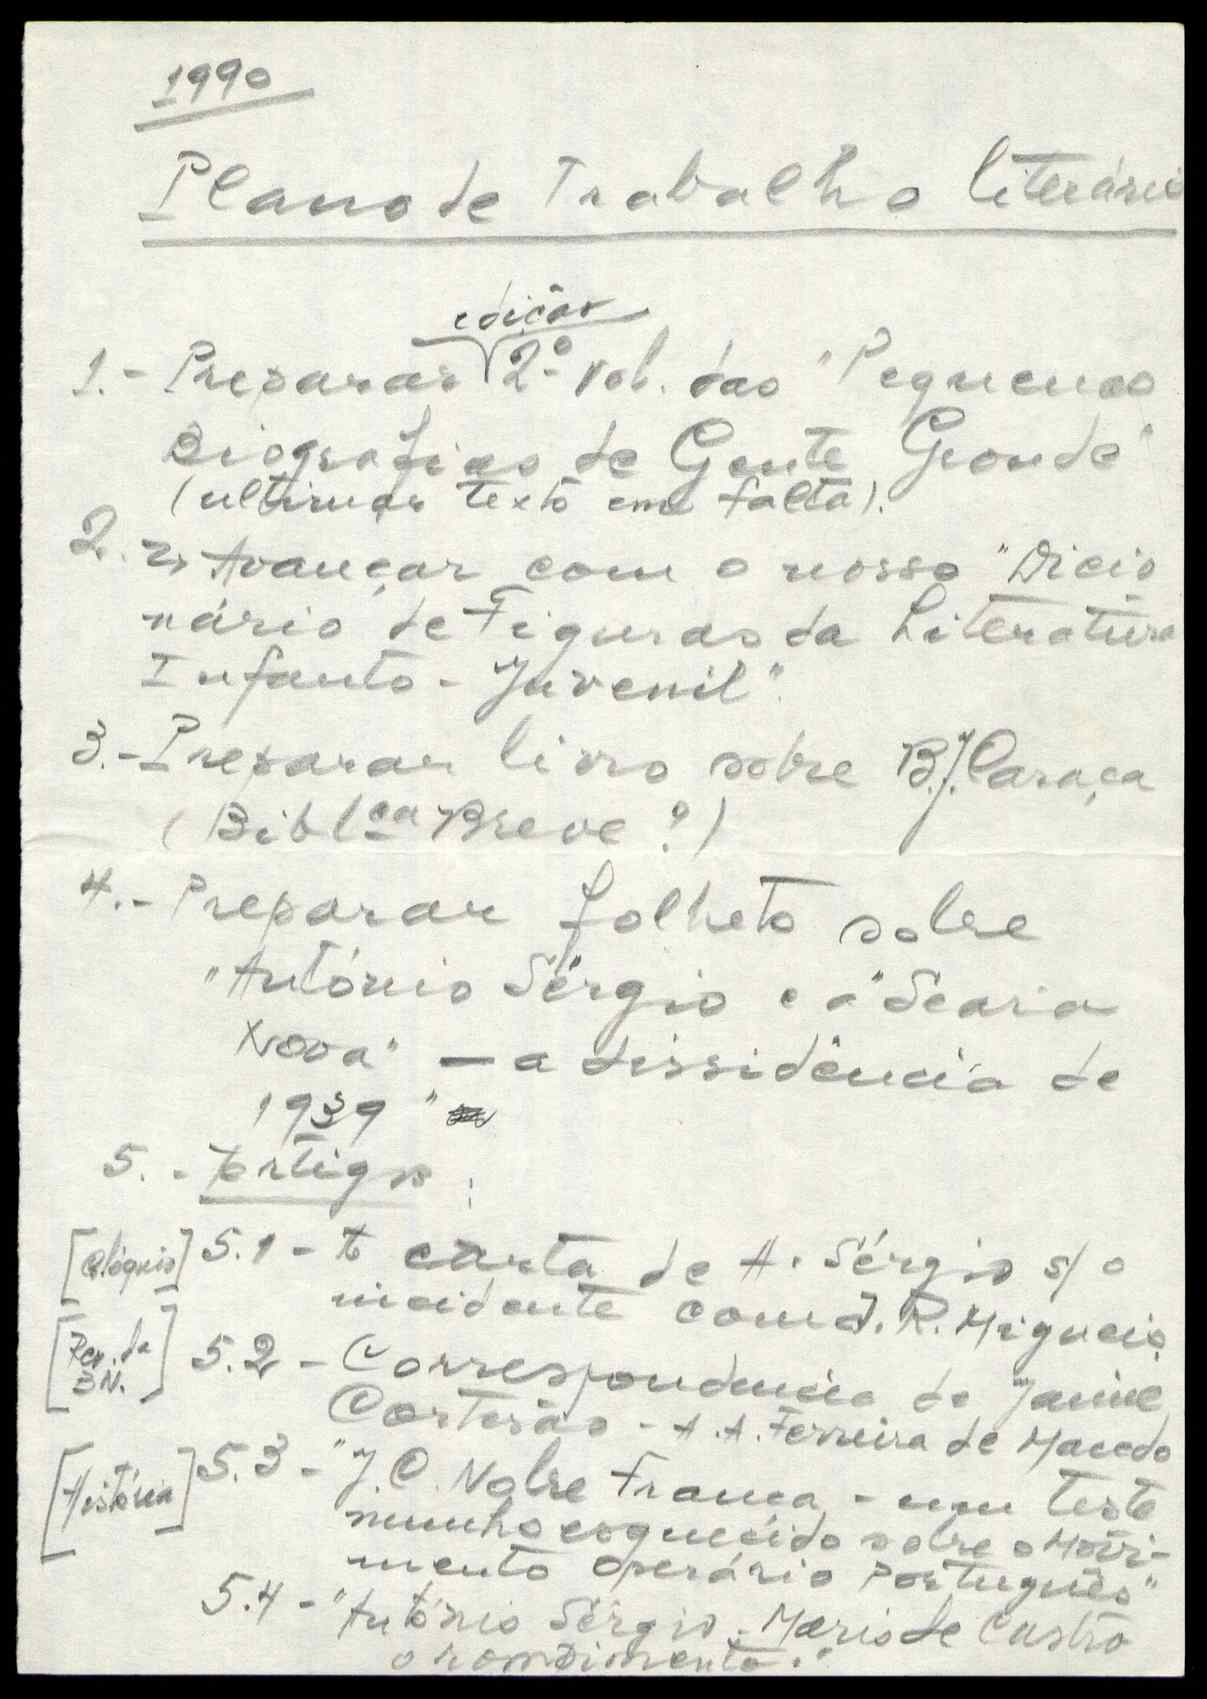 1990
Plano de Trabalho literário
edição
1.- Preparar 2º vol. das "Pequenas
Biografias de Gente Grande"
(ultimar texto em falta).
2. Avançar com o nosso "Dicio
nário de Figuras da Literatura
Infanto-Juvenil".
3.- Preparar livro sobre B.J. Caraça
(Biblca Breve?)
4.- Preparar folheto sobre
"António Sérgio e a "Seara
Nova" — a dissidência de
1939"
5.- Artigos:
[Colóquio] 5.1 - A carta de A. Sérgio s/ o
incidente com J. R. Migueis
[Rev. da
BN.] 5.2 - Correspondencia de Jaime
Cortesão - A. A. Ferreira de Macedo
[História] 5.3 - "J. C. Nobre França - um teste
munho esquecido sobre o Movi-
mento operário português"
5.4 - "António Sérgio - Mário de Castro
o rompimento."